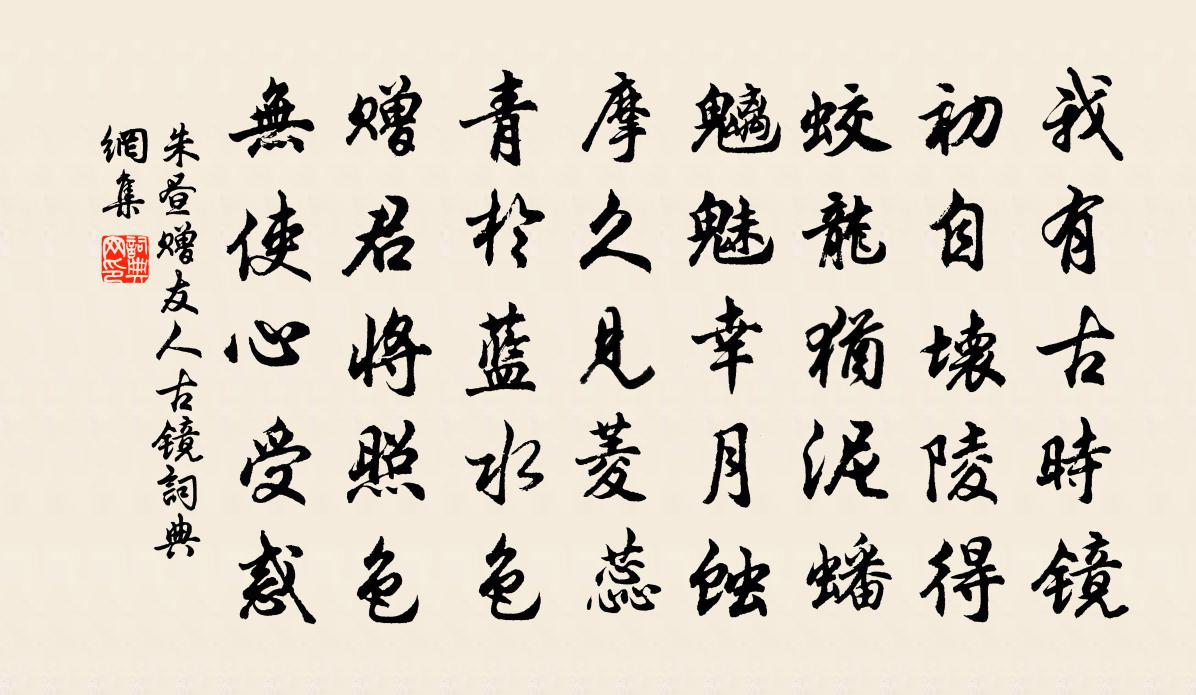 我有古時鏡
初自壞陵得
蛟龍猶泥蟠
魑魅幸月蝕
摩久見菱蕊
青於藍水色
贈君將照色
無使心受惑
朱晝贈友人古鏡詞典
網集
詞典
网印